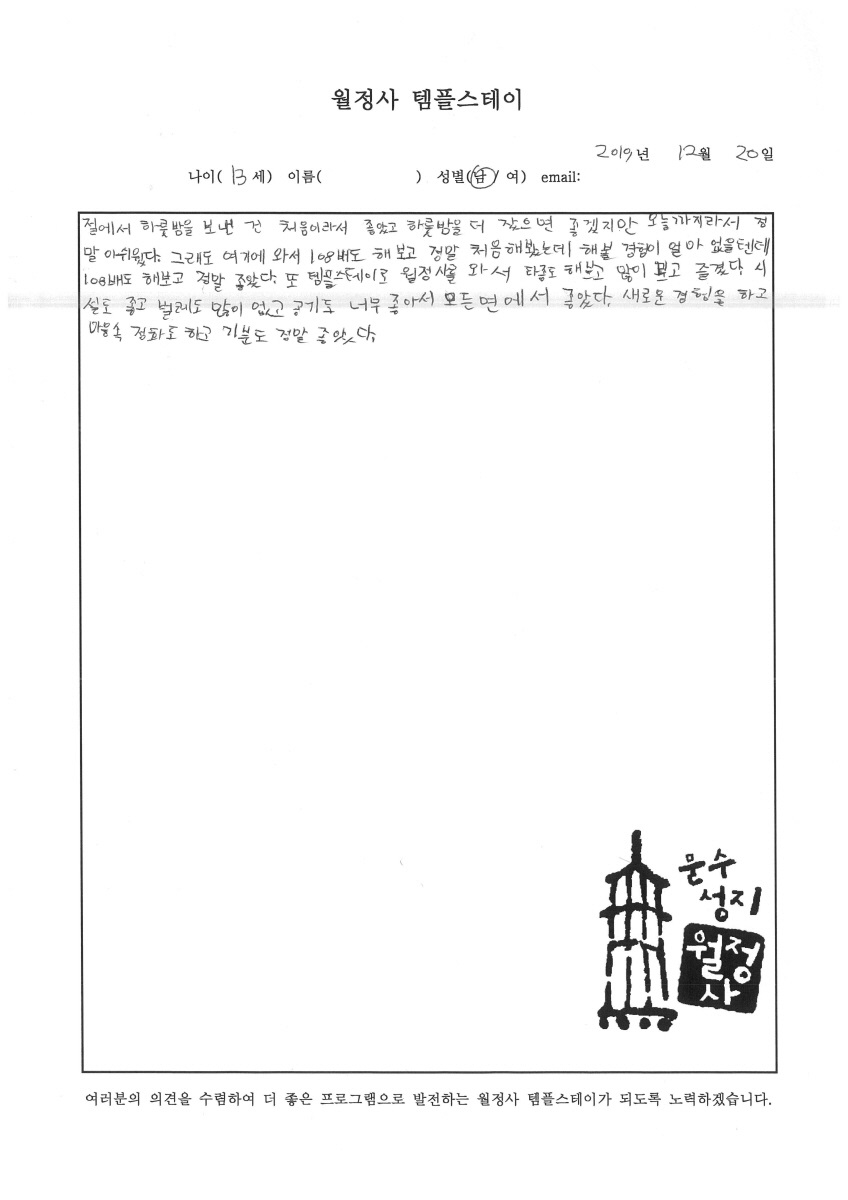 월정사 템플스테이
2019년 12월 20일
나이( 13 세) 이름( ) 성별(남/ 여) email:
절에서 하룻밤을 보낸 건 처음이라서 좋았고 하룻밤을 더 잤으면 좋겠지만 오늘까지라서 정
말 아쉬웠다. 그래도 여기에 와서 108배도 해보고 정말 처음해봤는데 해볼 경험이 얼마 없을텐데
108배도 해보고 정말 좋았다. 또 템플스테이로 월정사를 와서 타종도 해보고 많이 보고 즐겼다. 시
설도 좋고 벌레도 많이 없고 공기도 너무 좋아서 모든면에서 좋았다. 새로운 경험을 하고
마음속 정화도 하고 기분도 정말 좋았다.
문수
성지
월정
사
여러분의 의견을 수렴하여 더 좋은 프로그램으로 발전하는 월정사 템플스테이가 되도록 노력하겠습니다.